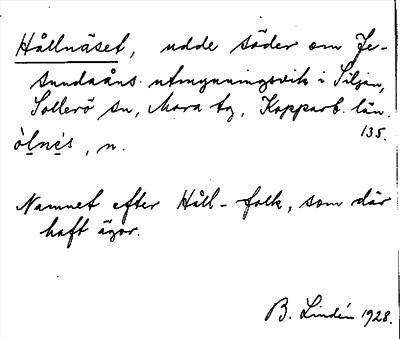 Hållnäset, udde söder om Je-
sundaåns utmynningsvik i Siljan,
Sollerö sn, Mora tg, Kopparb. län.
135.
ò̀l̠nè̠s, n.
Namnet efter Håll-folk, som där
haft ägor.
B. Lindén 1928.